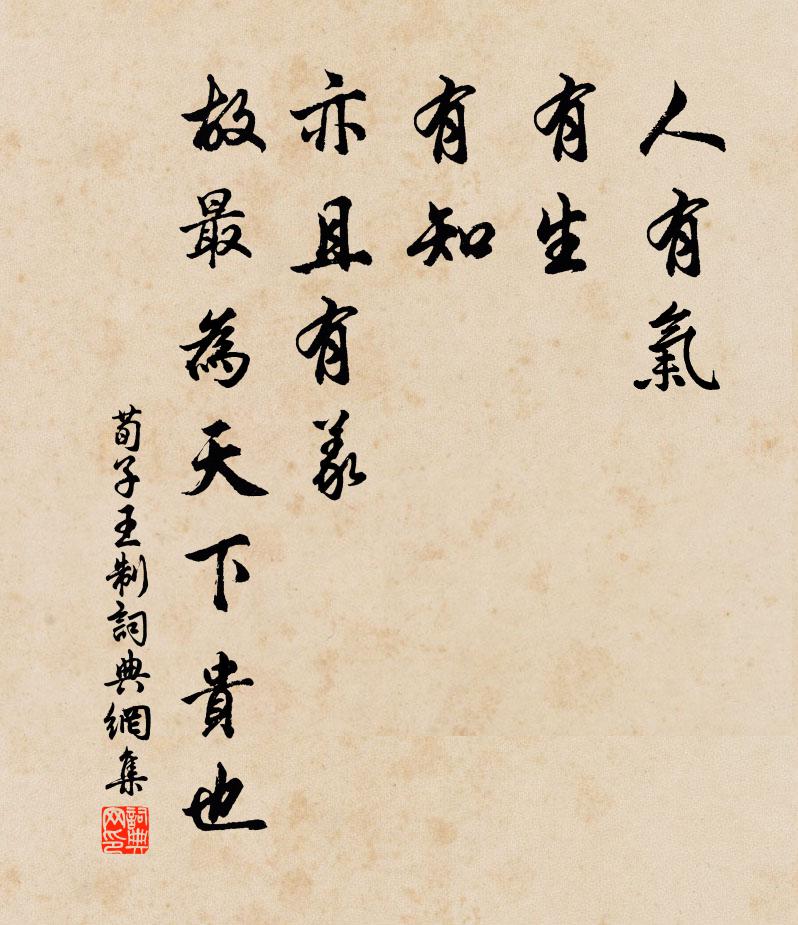 人有氣
有生
有知
亦且有義
故最為天下貴也
荀子王制詞典網集
詞典
网印